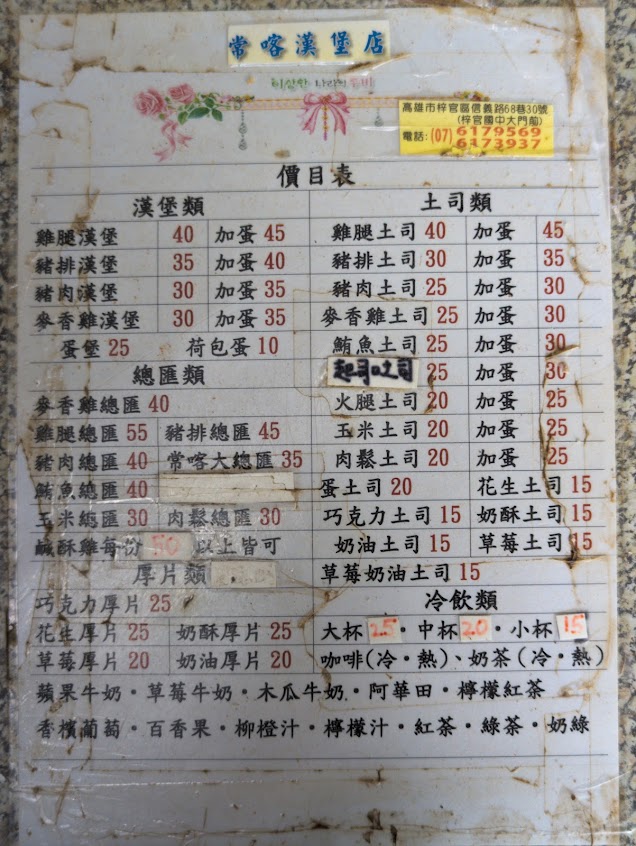 常喀漢堡店
高雄市梓官區信義路68巷30號
(梓官國中大門前)
電話:(07)6179569
6173937
價目表
漢堡類
雞腿漢堡 40 加蛋 45
豬排漢堡 35 加蛋 40
豬肉漢堡 30 加蛋 35
麥香雞漢堡 30 加蛋 35
蛋堡 25 荷包蛋 10
總匯類
麥香雞總匯 40
雞腿總匯 55 豬排總匯 45
豬肉總匯 40 常喀大總匯 35
鮪魚總匯 40
玉米總匯 30 肉鬆總匯 30
鹹酥雞每份 50 以上皆可
厚片類
巧克力厚片 25
花生厚片 25 奶酥厚片 25
草莓厚片 20 奶油厚片 20
土司類
雞腿土司 40 加蛋 45
豬排土司 30 加蛋 35
豬肉土司 25 加蛋 30
麥香雞土司 25 加蛋 30
鮪魚土司 25 加蛋 30
起司吐司 25 加蛋 30
火腿土司 20 加蛋 25
玉米土司 20 加蛋 25
肉鬆土司 20 加蛋 25
蛋土司 20 花生土司 15
巧克力土司 15 奶酥土司 15
奶油土司 15 草莓土司 15
草莓奶油土司 15
冷飲類
大杯 25・中杯 20・小杯 15
咖啡(冷・熱)、奶茶(冷・熱)
蘋果牛奶・草莓牛奶・木瓜牛奶・阿華田・檸檬紅茶
香檳葡萄・百香果・柳橙汁・檸檬汁・紅茶・綠茶・奶綠